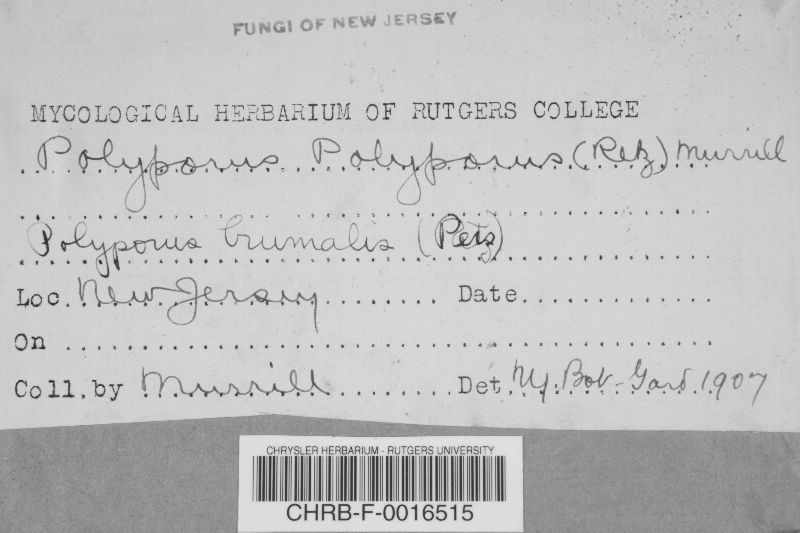 FUNGI OF NEW JERSEY
MYCOLOGICAL HERBARIUM OF RUTGERS COLLEGE
Polyporus Polyporus (Retz) Murrill
Polyporus brumalis (Pers)
Loc. New Jersey Date
On
Coll. by Murrill Det. Ny. Bot. Gard. 1907
CHRYSLER HERBARIUM - RUTGERS UNIVERSITY
CHRB-F-0016515